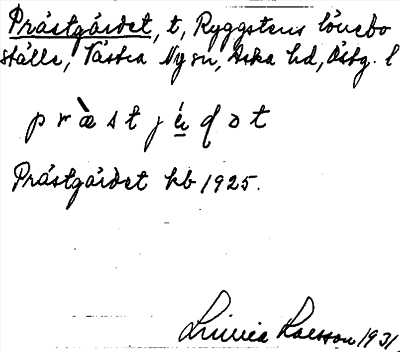 Prästgärdet, t, Ryggstens lönebo
ställe, Västra Ny sn, Aska hd, Östg. l
pr̀æstjæ̣qət
Prästgärdet kb 1925.
Linnea Larsson 1931.